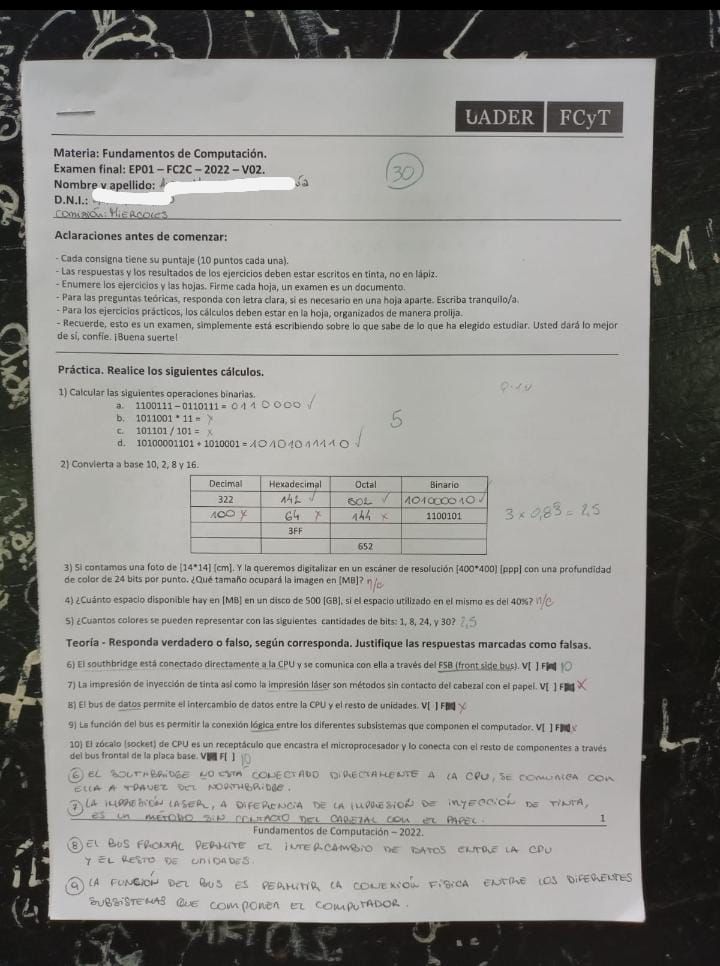 UADER FCyT
Materia: Fundamentos de Computación.
Examen final: EP01 – FC2C – 2022 – V02.
30
Nombre y apellido:
D.N.I.:
COMISIÓN: MIERCOLES
Aclaraciones antes de comenzar:
- Cada consigna tiene su puntaje (10 puntos cada una).
- Las respuestas y los resultados de los ejercicios deben estar escritos en tinta, no en lápiz.
- Enumere los ejercicios y las hojas. Firme cada hoja, un examen es un documento.
- Para las preguntas teóricas, responda con letra clara, si es necesario en una hoja aparte. Escriba tranquilo/a.
- Para los ejercicios prácticos, los cálculos deben estar en la hoja, organizados de manera prolija.
- Recuerde, esto es un examen, simplemente está escribiendo sobre lo que sabe de lo que ha elegido estudiar. Usted dará lo mejor
de sí, confíe. ¡Buena suerte!
Práctica. Realice los siguientes cálculos.
1) Calcular las siguientes operaciones binarias.
a. 1100111 – 0110111 = 0110000 ✓
b. 1011001 * 11 = x
c. 101101 / 101 = x
d. 10100001101 + 1010001 = 10101011110 ✓
5
2) Convierta a base 10, 2, 8 y 16.
Decimal Hexadecimal Octal Binario
322 142 ✓ 502 ✓ 101000010 ✓
100 x 64 x 144 x 1100101
3FF
652
3 x 0,83 = 2,5
3) Si contamos una foto de [14*14] [cm]. Y la queremos digitalizar en un escáner de resolución [400*400] [ppp] con una profundidad
de color de 24 bits por punto. ¿Qué tamaño ocupará la imagen en [MB]? n/c
4) ¿Cuánto espacio disponible hay en [MB] en un disco de 500 [GB], si el espacio utilizado en el mismo es del 40%? n/c
5) ¿Cuantos colores se pueden representar con las siguientes cantidades de bits: 1, 8, 24, y 30? 2,5
Teoría - Responda verdadero o falso, según corresponda. Justifique las respuestas marcadas como falsas.
6) El southbridge está conectado directamente a la CPU y se comunica con ella a través del FSB (front side bus). V[ ] F 10
7) La impresión de inyección de tinta así como la impresión láser son métodos sin contacto del cabezal con el papel. V[ ] F x
8) El bus de datos permite el intercambio de datos entre la CPU y el resto de unidades. V[ ] F x
9) La función del bus es permitir la conexión lógica entre los diferentes subsistemas que componen el computador. V[ ] F x
10) El zócalo (socket) de CPU es un receptáculo que encastra el microprocesador y lo conecta con el resto de componentes a través
del bus frontal de la placa base. V F[ ] 10
6 EL SOUTHBRIDGE NO ESTA CONECTADO DIRECTAMENTE A LA CPU, SE COMUNICA CON
ELLA A TRAVEZ DEL NORTHBRIDGE.
7 LA IMPRESIÓN LASER, A DIFERENCIA DE LA IMPRESION DE INYECCIÓN DE TINTA,
ES UN METODO SIN CONTACTO DEL CABEZAL CON EL PAPEL.
1
Fundamentos de Computación – 2022.
8 EL BUS FRONTAL PERMITE EL INTERCAMBIO DE DATOS ENTRE LA CPU
Y EL RESTO DE UNIDADES.
9 LA FUNCIÓN DEL BUS ES PERMITIR LA CONEXIÓN FÍSICA ENTRE LOS DIFERENTES
SUBSISTEMAS QUE COMPONEN EL COMPUTADOR.